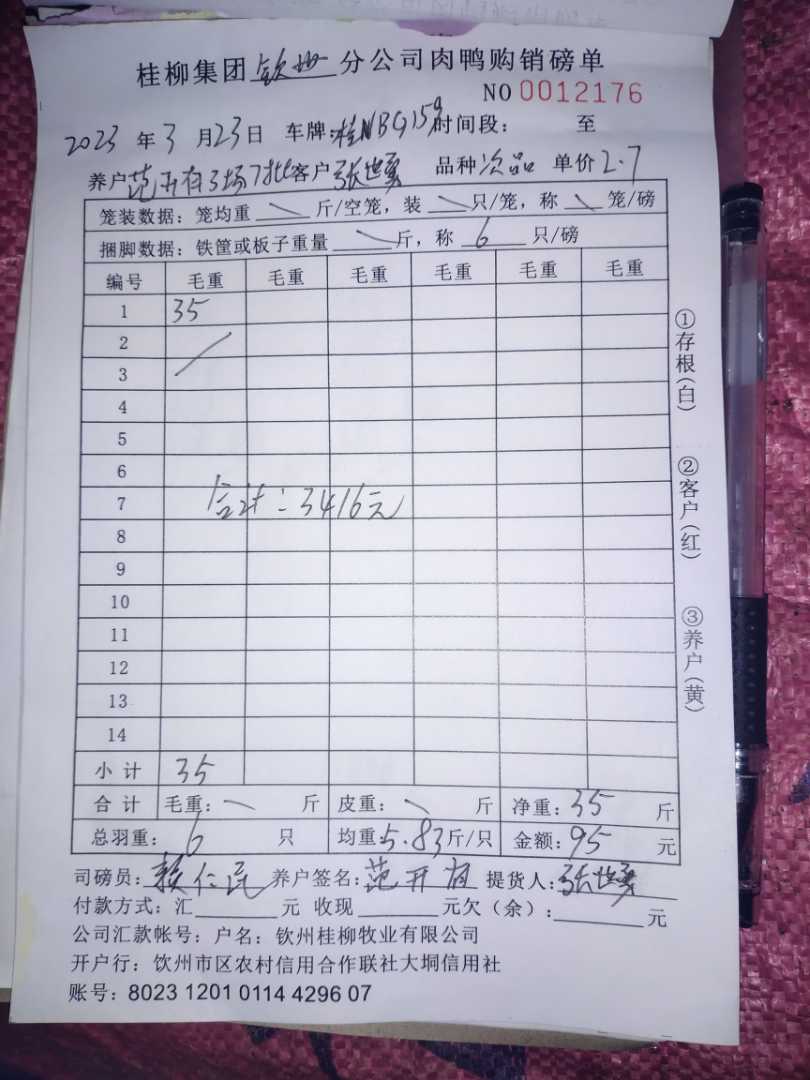 桂柳集团钦州分公司肉鸭购销磅单
NO 0012176
2023年3月23日 车牌:桂NBG159 时间段: 至
养户范开有3场7批客户张世勇 品种次品 单价2.7
笼装数据:笼均重 \ 斤/空笼,装 \ 只/笼,称 \ 笼/磅
捆脚数据:铁筐或板子重量 \ 斤,称 6 只/磅
编号 毛重 毛重 毛重 毛重 毛重
1 35
2
3
4
5
6
7 合计:3416元
8
9
10
11
12
13
14
小计 35
合计 毛重:\ 斤 皮重:\ 斤 净重:35 斤
总羽重:6 只 均重5.83斤/只 金额:95 元
司磅员:赖仁民 养户签名:范开有 提货人:张世勇
付款方式:汇 元 收现 元欠(余): 元
公司汇款帐号:户名:钦州桂柳牧业有限公司
开户行:饮州市区农村信用合作联社大垌信用社
账号:8023 1201 0114 4296 07
①存根(白)
②客户(红)
③养户(黄)